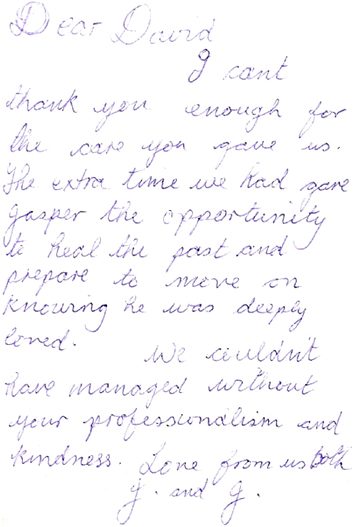 Dear David
I cant
thank you enough for
the care you gave us.
The extra time we had gave
Gasper the opportunity
to heal the past and
prepare to move on
knowing he was deeply
loved.
We couldn't
have managed without
your professionalism and
kindness. Love from us both
J. and G.